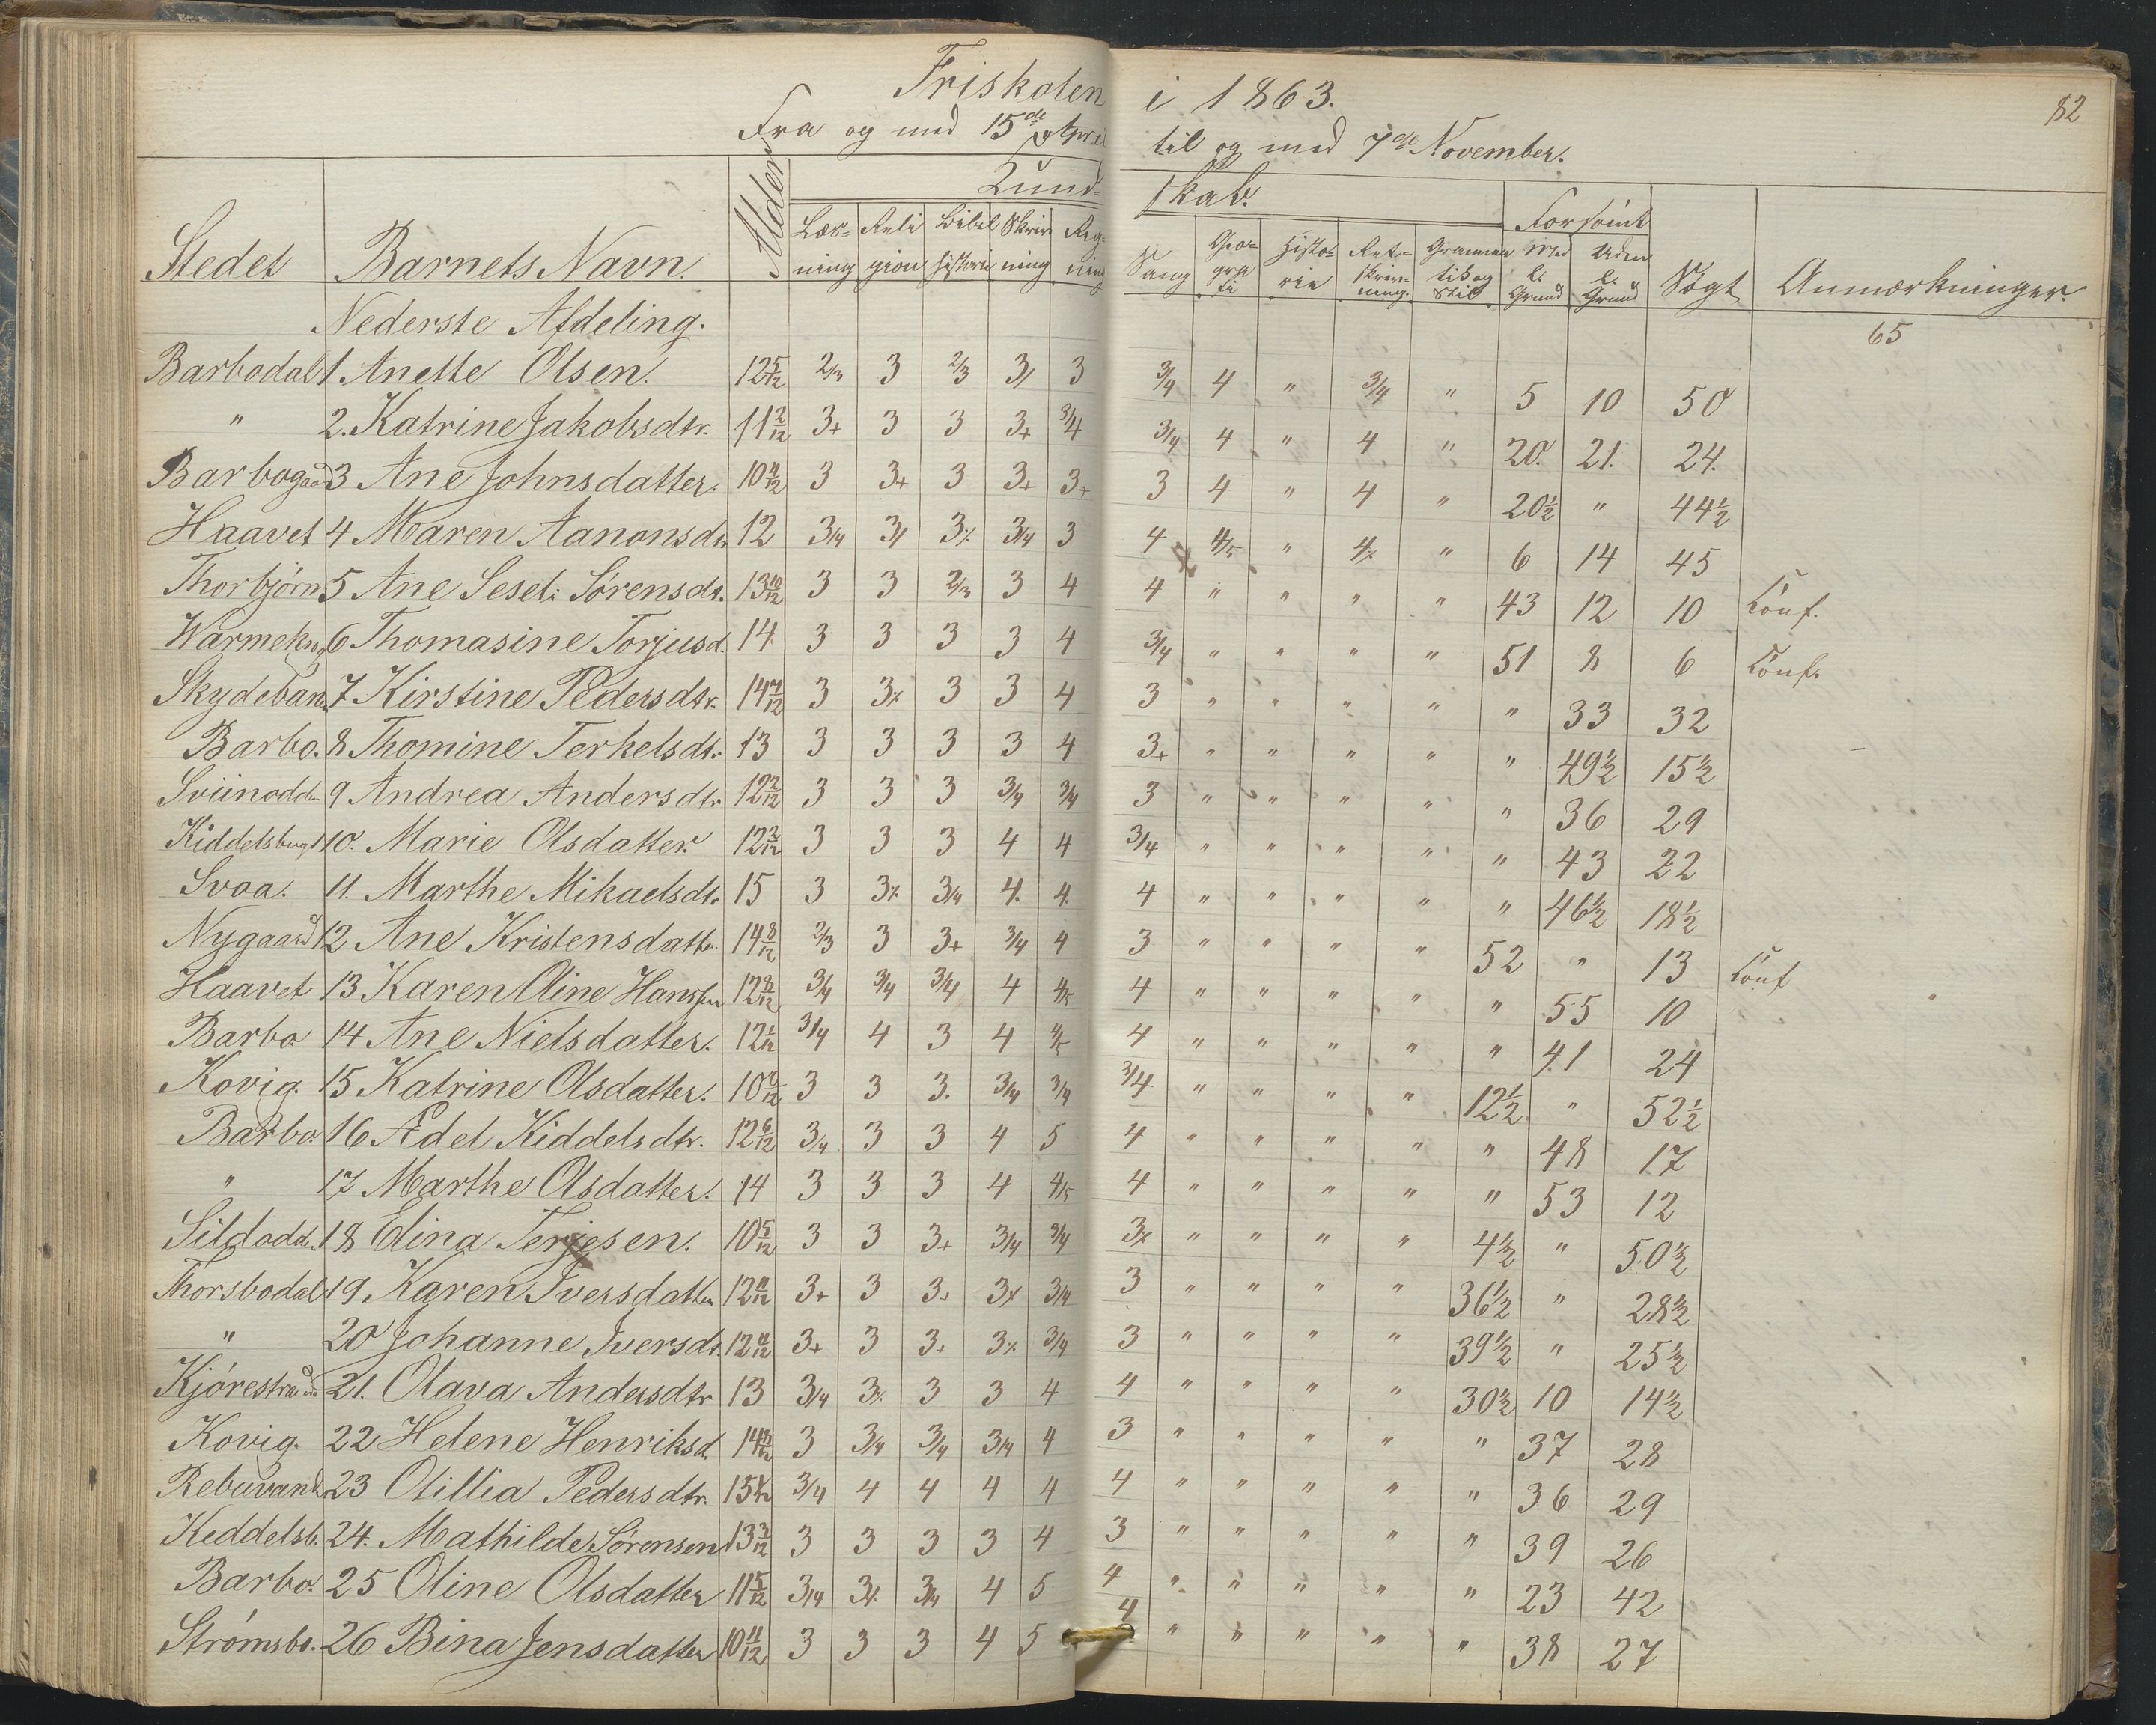 Friskolen i 1863.
82
Fra og med 15de April til og med 7de November.
Stedet Barnets Navn. Alder Kund- skab. Forsømt Søgt Anmærkninger.
Læs- ning Reli gion Bibel historie Skriv ning Reg- ning Sang Geo- gra fi Histo- rie Ret- skriv- ning. Gramma tik og Stil Med l. Grund Uden l. Grund
Nederste Afdeling. 65
Barbodal 1. Anette Olsen. 12 5/12 2/3 3 2/3 3/ 3 3/4 4 " 3/4 " 5 10 50
" 2. Katrine Jakobsdtr. 11 2/12 3+ 3 3 3+ 3/4 3/4 4 " 4 " 20. 21. 24.
Barbogaad 3 Ane Johnsdatter. 10 11/12 3 3+ 3 3+ 3+ 3 4 " 4 " 20½ " 44½
Haavet 4 Maren Aanonsdr. 12 3/4 3/ 3% 3/4 3 4 4/5 " 4% " 6 14 45
Thorbjørn 5 Ane Sesel: Sørensdt. 13 10/12 3 3 2/3 3 4 4 " " " " 43 12 10 Conf.
6 Thomasine Torjusd. 14. 3 3 3 3 4 3/4 " " " " 51 8 6 Conf.
Skydeban. 7 Kirstine Pedersdtr. 14 7/12 3 3% 3 3 4 3 " " " " " 33 32
Barbo. 8 Thomine Terkelsdtr 13 3 3 3 3 4 3+ " " " " " 49½ 15½
Sviinodden 9 Andrea Andersdtr 12 2/12 3 3 3 3/4 3/4 3 " " " " " 36 29
Kiddelsbug 10. Marie Olsdatter. 12 3/12 3 3 3 4 4 3/4 " " " " " 43 22
Svaa. 11. Marthe Mikaelsdtr 15 3 3% 3/4 4. 4. 4 " " " " " 46½ 18½
Nygaard 12 Ane Kristensdattr. 14 8/12 2/3 3 3+ 3/4 4 3 " " " " 52 " 13 Conf
Haavet 13 Karen Oline Hansen 12 8/12 3/4 3/4 3/4 4 4/5 4 " " " " " 55 10
Barbo 14 Ane Nielsdatter. 12 1/12 3/4 4 3 4 4/5 4 " " " " " 41 24
Kovig. 15 Katrine Olsdatter. 10 6/12 3 3 3. 3/4 3/4 3/4 " " " " 12½ " 52½
Barbo. 16 Ædel Kiddelsdtr. 12 6/12 3/4 3 3 4 5 4 " " " " " 48 17
" 17 Marthe Olsdatter. 14 3 3 3 4 4/5 4 " " " " " 53 12
Sildodden 18 Elina Terjesen. 10 5/12 3 3 3+ 3/4 3/4 3% " " " " 4½ " 50½
Thorsbodal 19. Karen Iversdatter 12 11/12 3+ 3 3+ 3% 3/4 3 " " " " 36½ " 28½
" 20 Johanne Iversdt. 12 11/12 3+ 3 3+ 3% 3/4 3 " " " " 39½ " 25½
Kjørestrand 21. Olava Andersdtr 13 3/4 3% 3 3 4 4 " " " " 30½ 10 14½
Kovig. 22 Helene Henriksd. 14 3 3/4 3/4 3/4 4 3 " " " " " 37 28
Rebuvand 23 Otillia Pedersdtr. 13 3/4 4 4 4 4 4 " " " " " 36 29
Keddelsb. 24. Mathilde Sørensen 13 3/12 3 3 3 3 4 3 " " " " " 39 26
Barbo. 25 Oline Olsdatter 11 5/12 3/4 3% 3/4 4 5 4 " " " " " 23 42
Strømsbo. 26 Bina Jensdatter 10 11/12 3 3 3 4 5 4 " " " " " 38 27